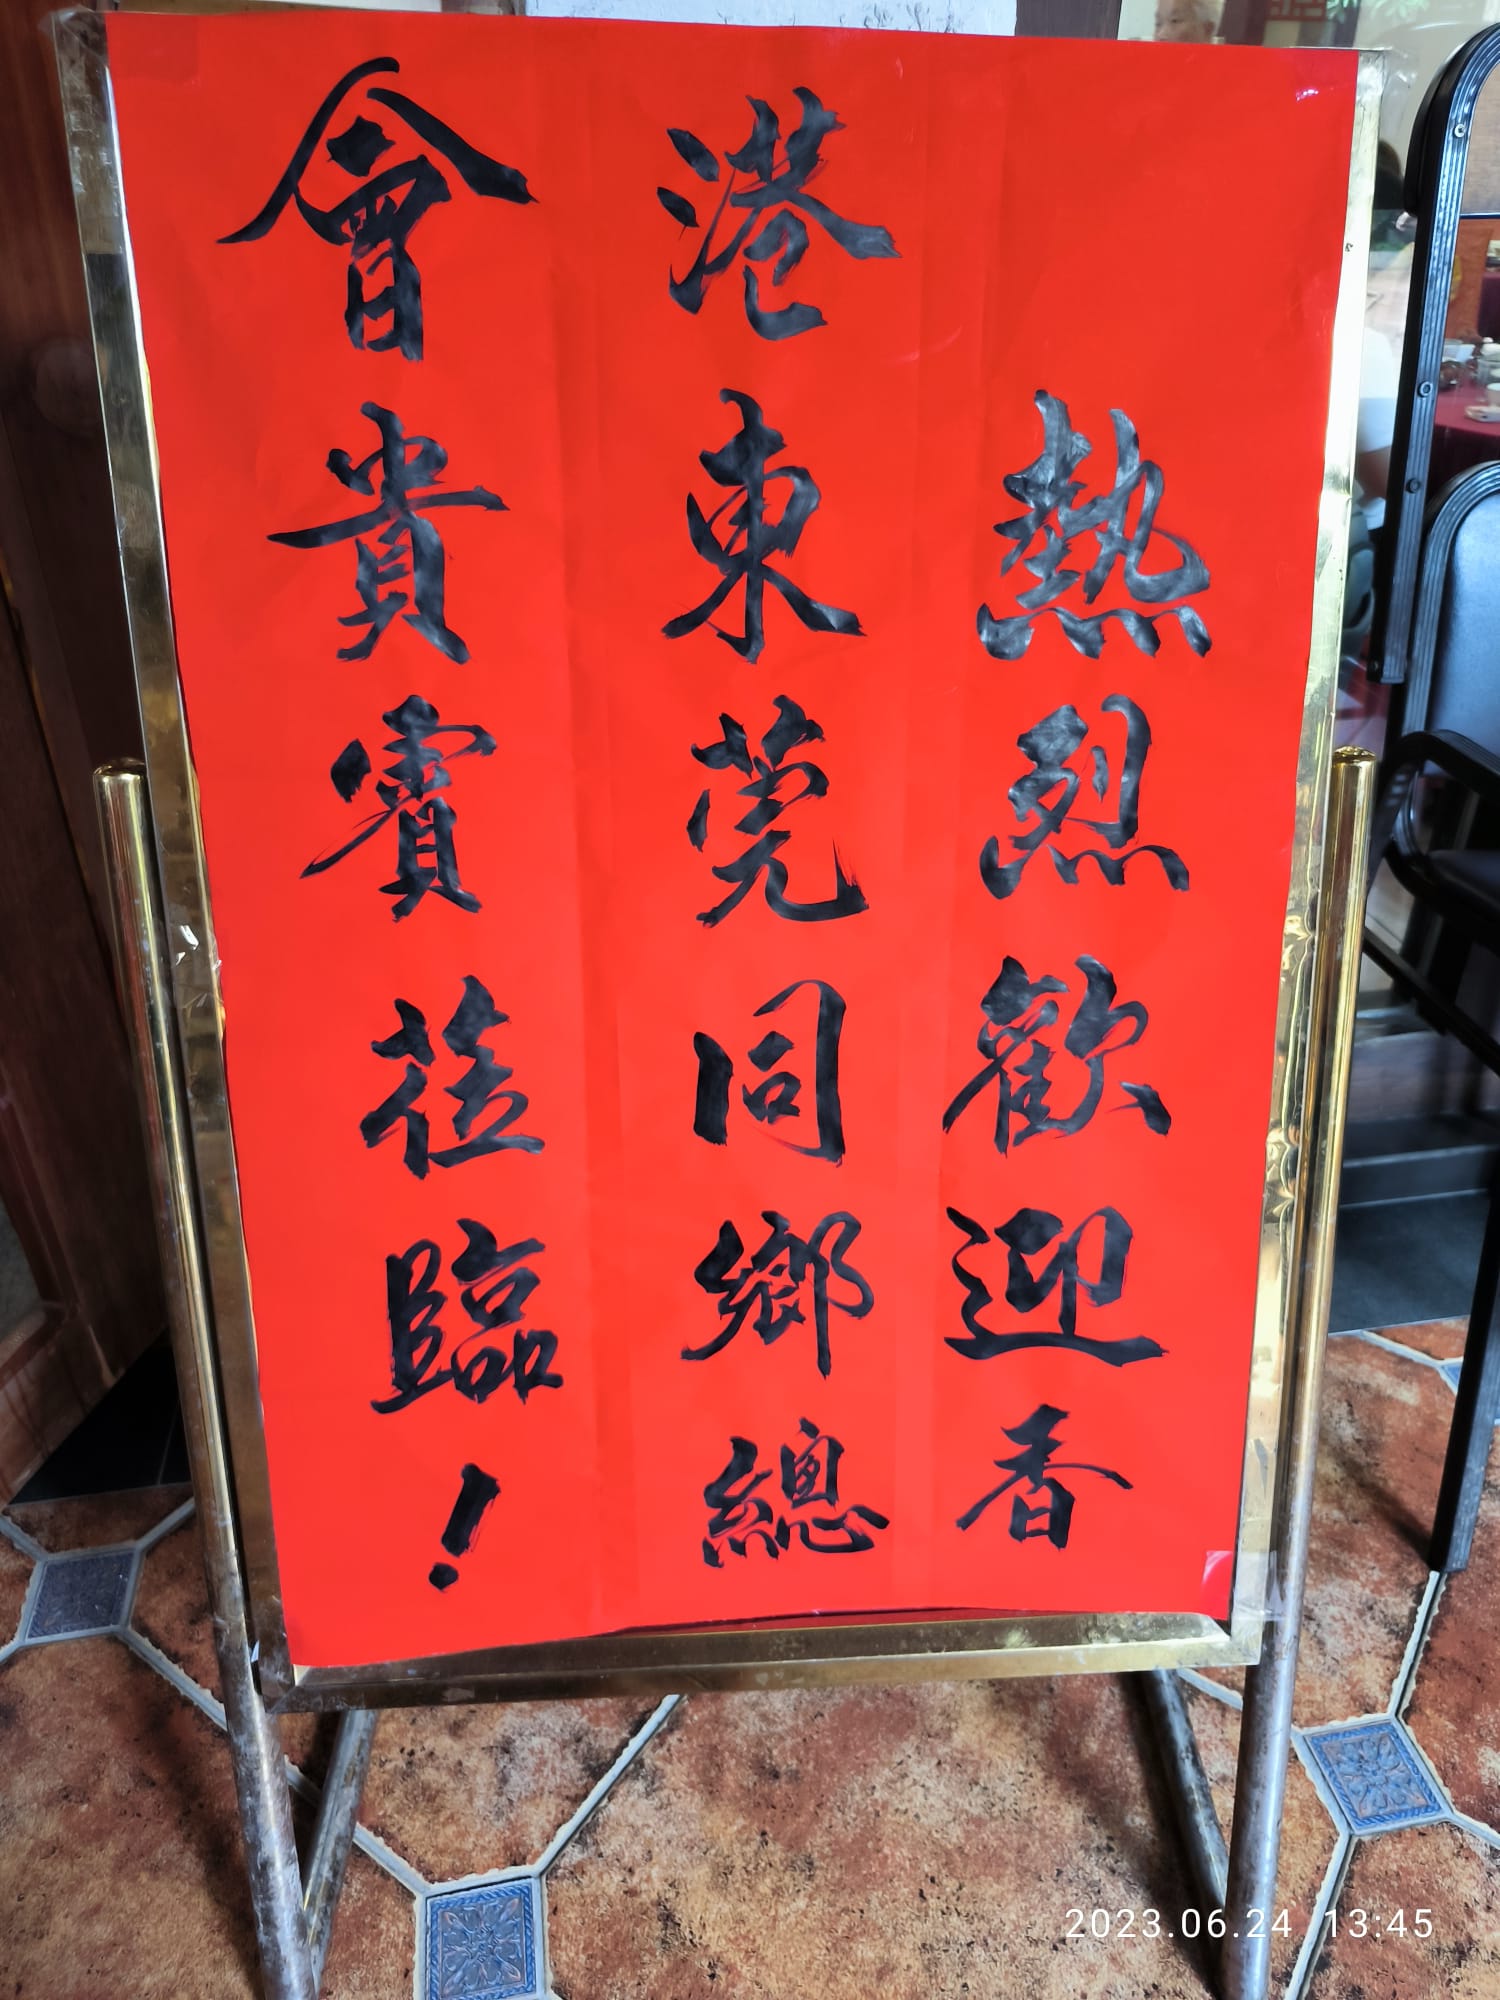 熱烈歡迎香
港東莞同鄉總
會貴賓莅臨！
2023.06.24 13:45